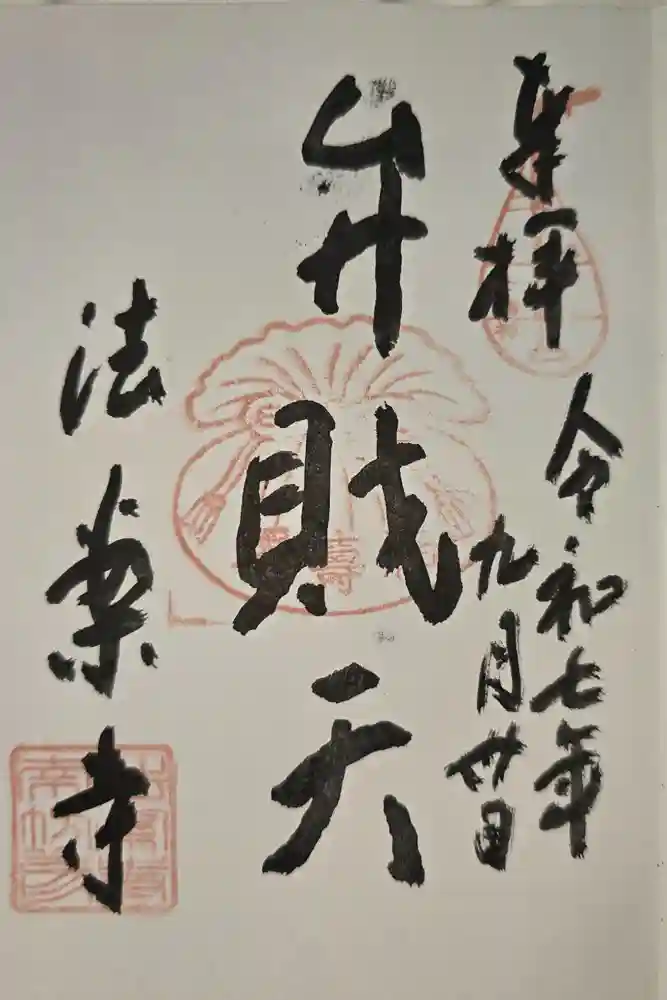 奉拝
令和七年
九月廿日
弁財天
寿
法楽寺